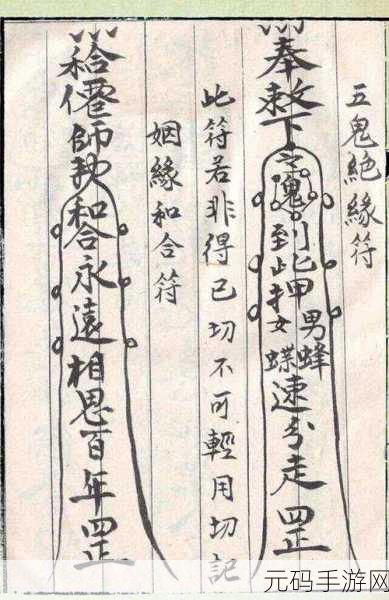 五鬼絕緣符
奉敕下五鬼到此甲男蜂
女蝶速分走罡
此符若非得已切不可輕用切記
姻緣和合符
和合僊師敕和合永遠相思百年罡
元码手游网